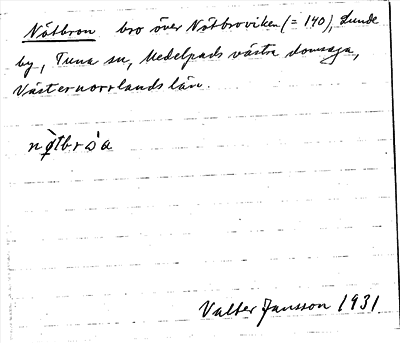 Nötbron bro över Nötbroviken (= 140), Lunde
by, Tuna sn, Medelpads västra domsaga,
Västernorrlands län.
Valter Jansson 1931